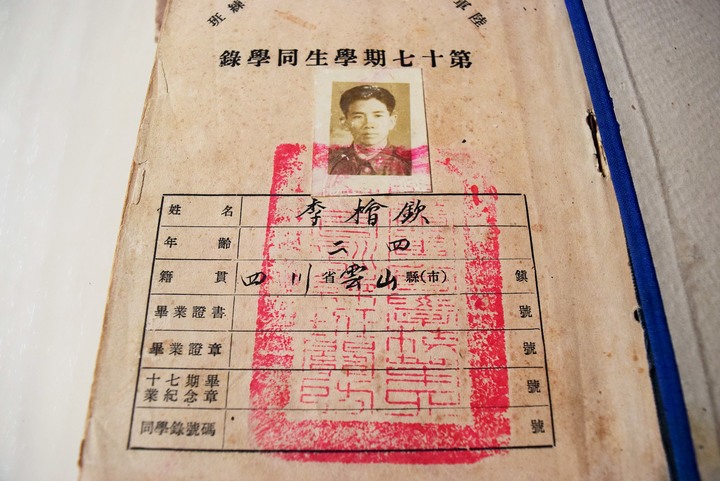 陸軍 練班
第十七期學生同學錄
姓名 李檜欽
年齡 二四
籍貫 四川省雲山縣(市) 鎮
畢業證書 號
畢業證章 號
十七期畢
業紀念章 號
同學錄號碼 號